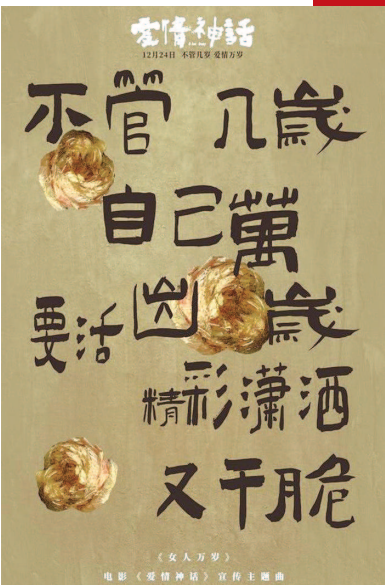 爱情神話
12月24日 不管几岁 爱情万岁
不管 几歲
自己萬
歲
要活出
精彩瀟洒
又干脆
《女人万岁》
电影《爱情神话》宣传主题曲